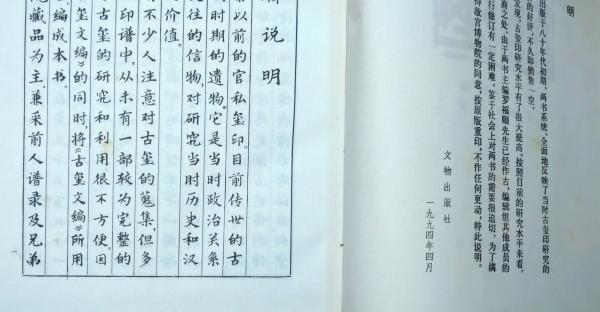 明
出版于八十年代初期，两书系统、全面地反映了当时古玺印研究的
的好评，不久即销售一空。
发现，古玺印研究水平有了很大提高。按照目前的研究水平来看，
商之处。由于两书主编罗福颐先生已经作古，编辑组其他成员的
行修订有一定困难。鉴于社会上对两书的需要很迫切，为了满
得故宫博物院的同意，按原版重印，不作任何更动，特此说明。
文物出版社
一九九四年四月
说明
以前的官私玺印。目前传世的古
时期的遗物。它是当时政治关系
往的信物，对研究当时历史和汉
价值。
不少人注意对古玺的蒐集，但多
印谱中，从未有一部较为完整的
古玺的研究和利用很不方便。因
玺文编》的同时，将《古玺文编》所用
编成本书。
藏品为主，兼采前人谱录及兄弟